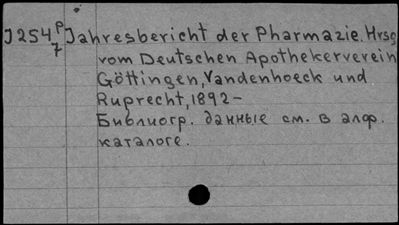 J254 P/7 Jahresbericht der Pharmazie. Hrsg
vom Deutschen Apothekerverein
Göttingen, Vandenhoeck und
Ruprecht, 1892-
Библиогр. данные см. в алф.
каталоге.